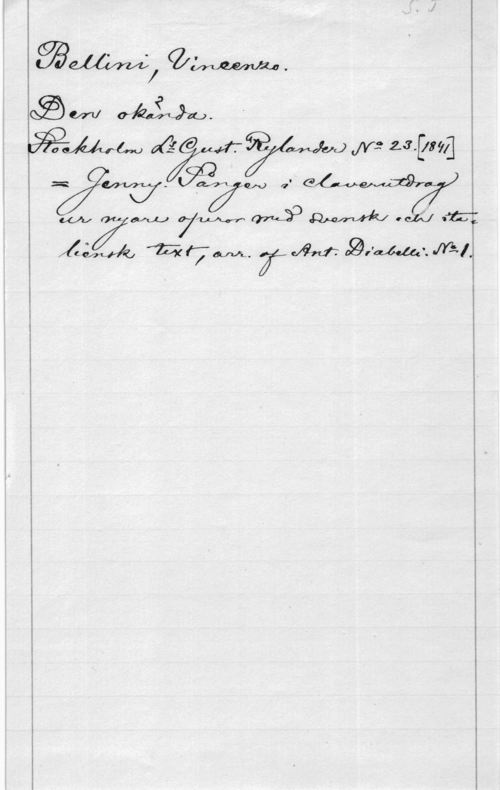 S. J
Bellini, Vincenzo.
Den okända.
Stockholm Lz Gust. Rylander № 23. [1841]
= Jenny. Sånger i claverutdrag
ur nyare operor med svensk och ita-
liensk text, arr. af Ant. Diabelli. № 1.